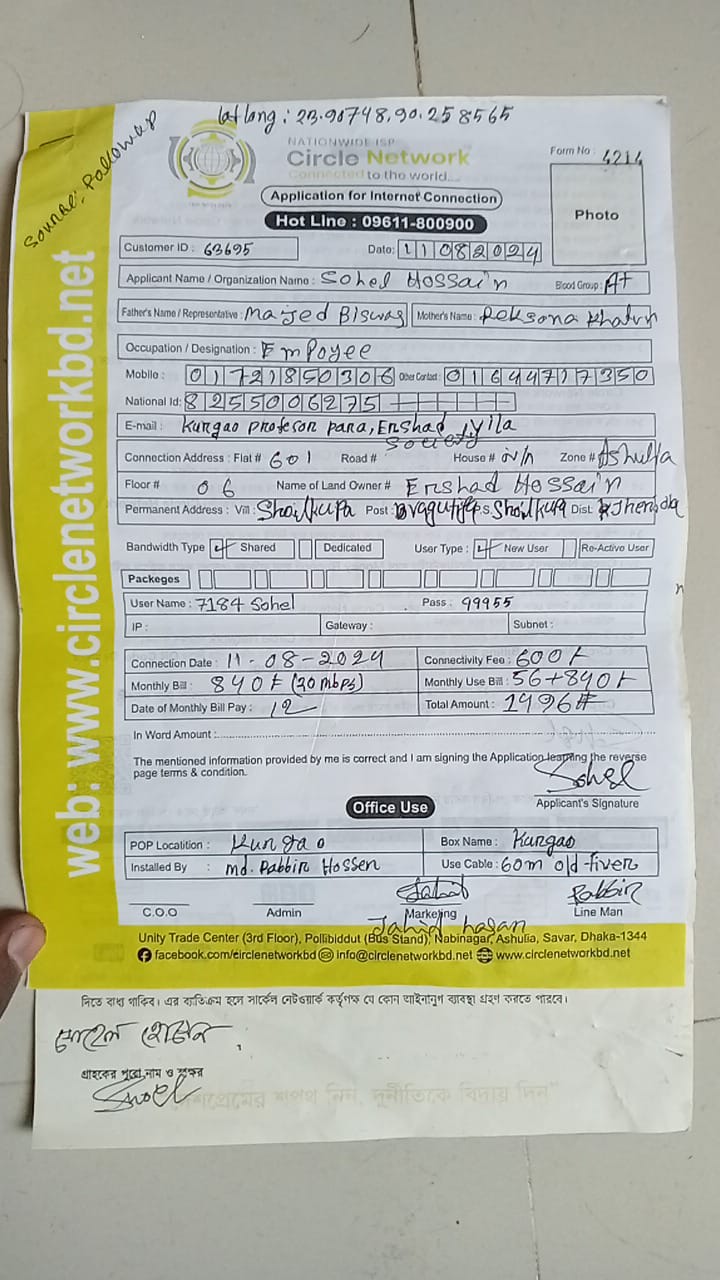 lat long : 23.90748,90.258565
NATIONWIDE ISP
Circle Network
Connected to the world....
Form No : 4214
Application for Internet Connection
Hot Line : 09611-800900
Photo
web: www.circlenetworkbd.net
Customer ID : 63695 Date: 11082024
Applicant Name / Organization Name : Sohel Hossain Blood Group : A+
Father's Name / Representative : Majed Biswas Mother's Name : Reksona Khatun
Occupation / Designation : Empoyee
Mobile : 01721850306 Other Contact : 01644717350
National Id: 8255006275
E-mail : Kurgao profesor para, Ershad
Society
Connection Address : Flat # 601 Road # House # Zone # Ashulia
Floor # 06 Name of Land Owner # Ershad Hossain
Permanent Address : Vill : Shoilkupa Post : P.S. Shoilkupa Dist.
Bandwidth Type Shared Dedicated User Type : New User Re-Active User
Packeges
User Name : 7184 Sohel Pass : 99955
IP : Gateway : Subnet :
Connection Date : 11-08-2024 Connectivity Fee : 600/-
Monthly Bill : 840/- (20 mbps) Monthly Use Bill : 56+840/-
Date of Monthly Bill Pay : 12 Total Amount : 1496
In Word Amount :
The mentioned information provided by me is correct and I am signing the Application leaping the reverse
page terms & condition.
Sohel
Applicant's Signature
Office Use
POP Localition : Kurgao Box Name : Kurgao
Installed By : md. Rabbir Hossen Use Cable : 60m old fiver
Jahid Rabbir
C.O.O Admin Marketing Line Man
Jahid hasan
Unity Trade Center (3rd Floor), Pollibiddut (Bus Stand), Nabinagar, Ashulia, Savar, Dhaka-1344
facebook.com/circlenetworkbd info@circlenetworkbd.net www.circlenetworkbd.net
দিতে বাধ্য থাকিব। এর ব্যতিক্রম হলে সার্কেল নেটওয়ার্ক কর্তৃপক্ষ যে কোন আইনানুগ ব্যবস্থা গ্রহণ করতে পারবে।
সোহেল হোসেন
গ্রাহকের পুরো নাম ও স্বাক্ষর
Sohel